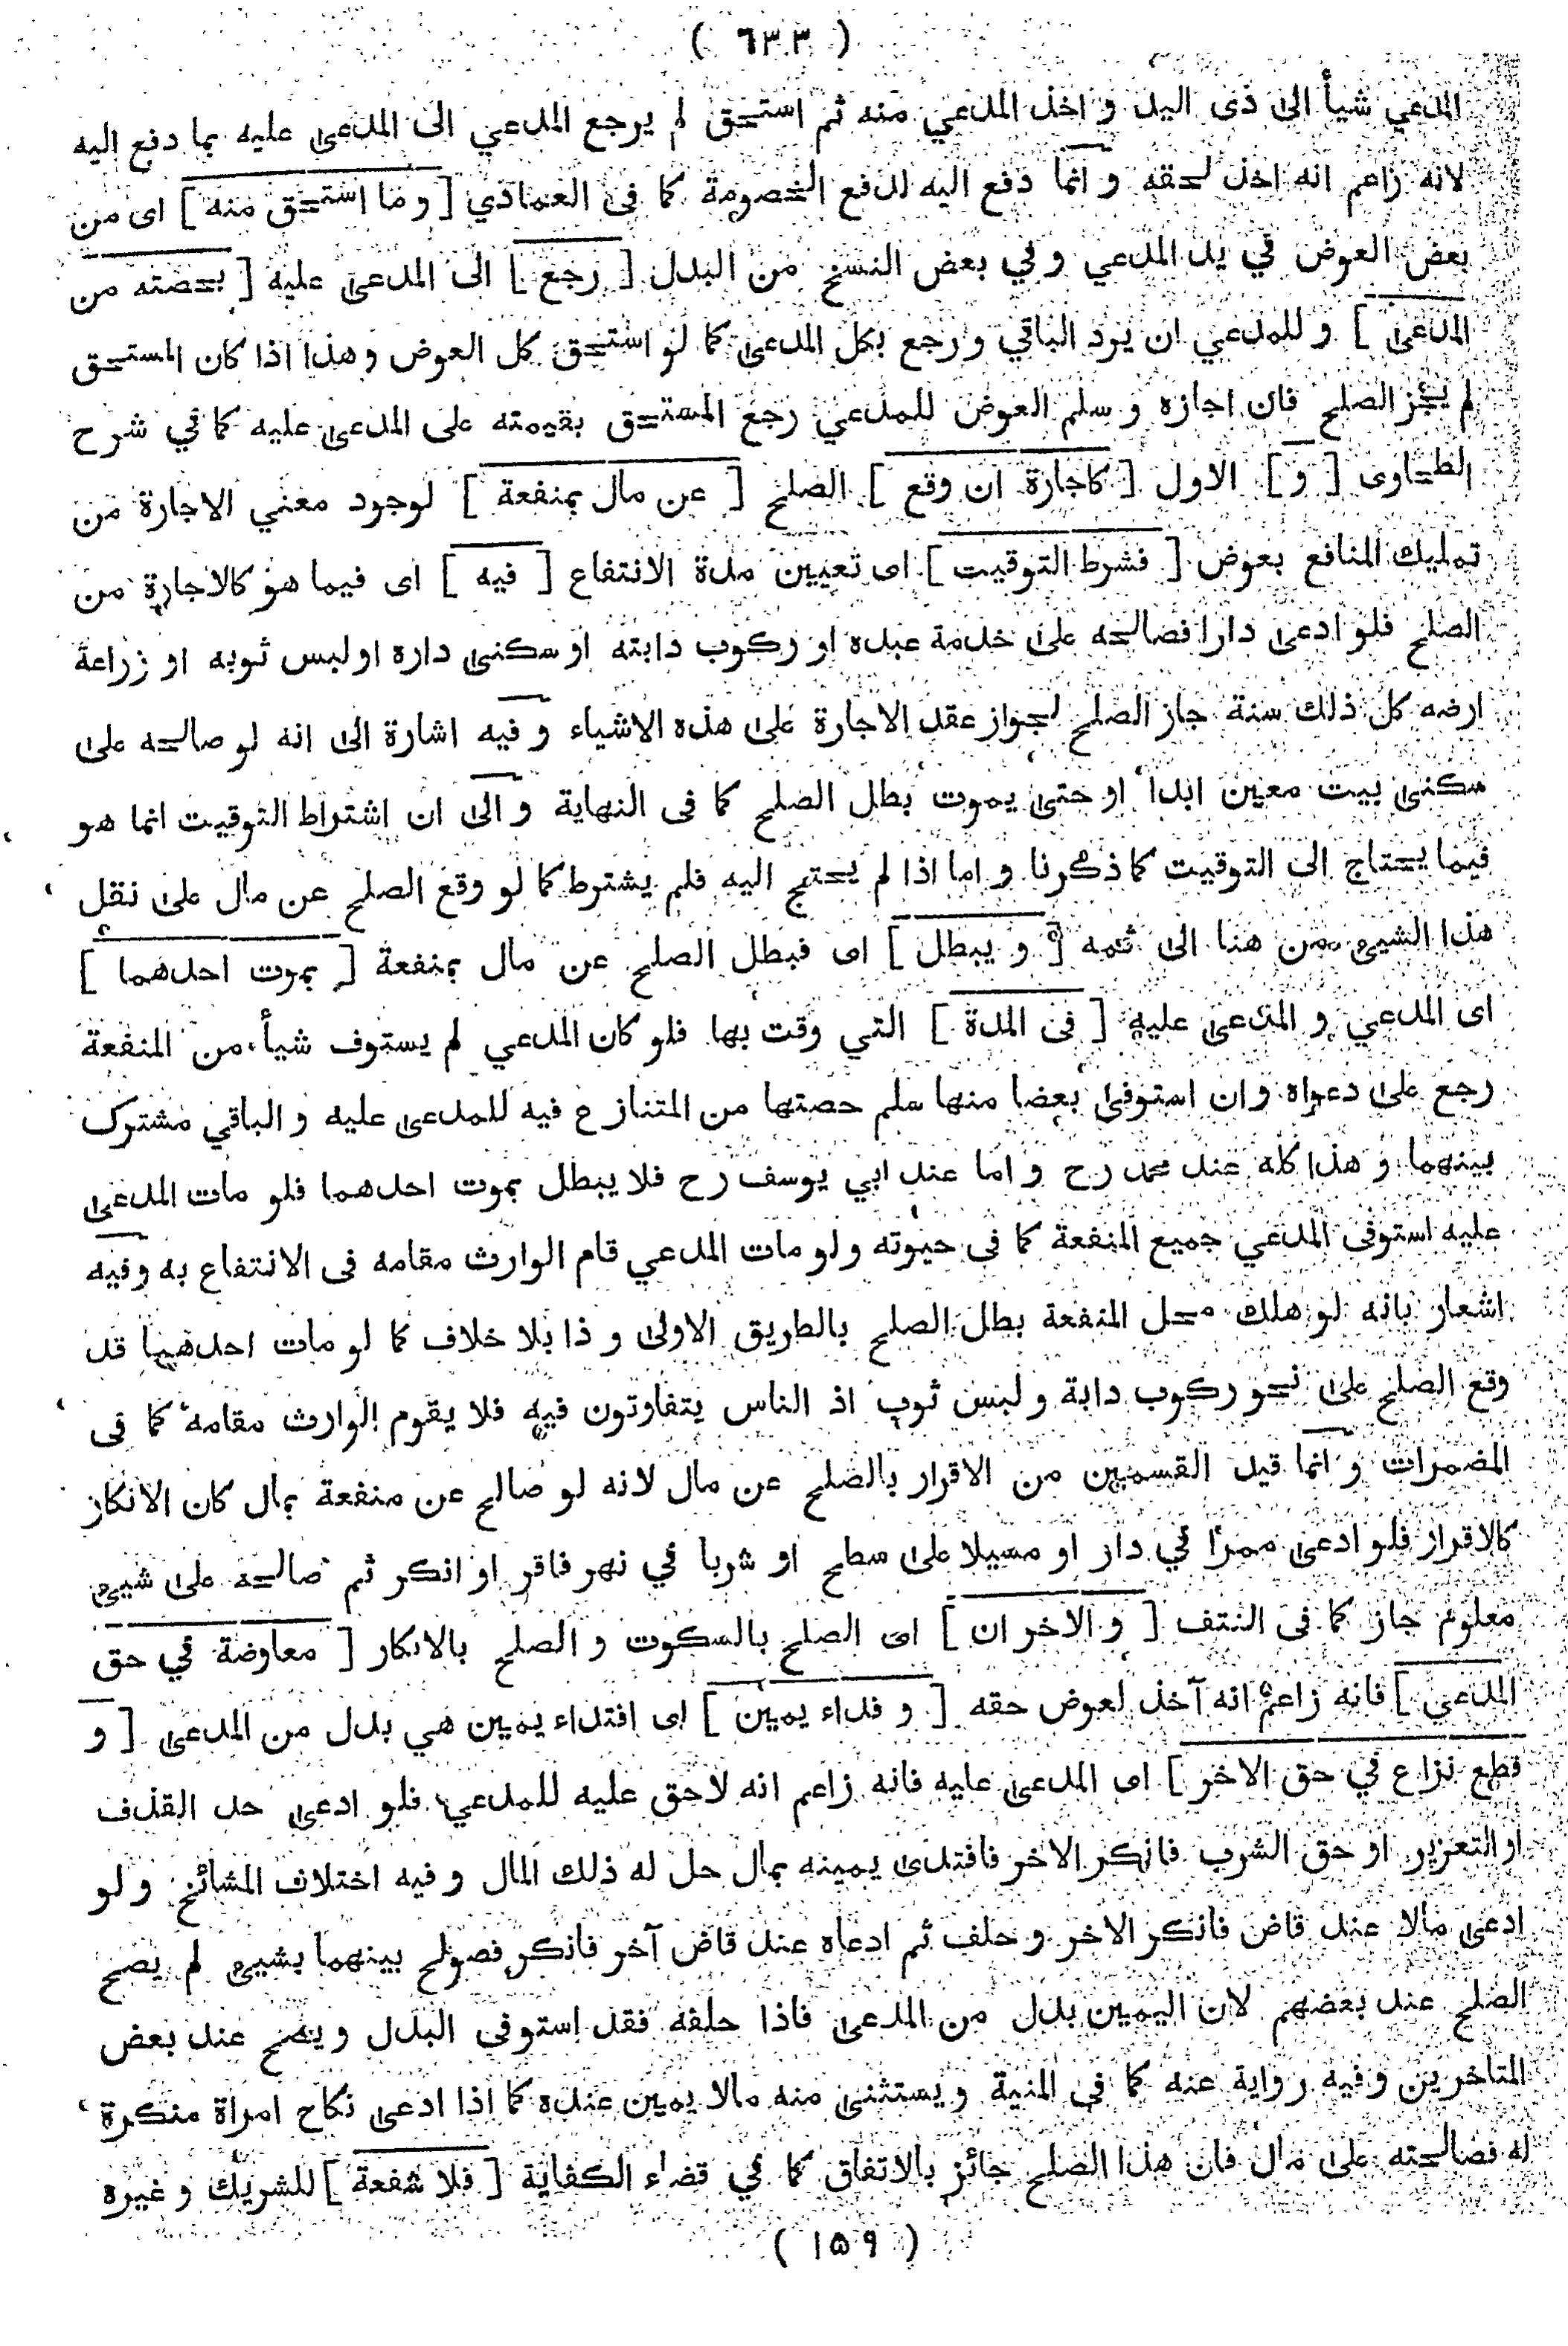 ( ٦٣٣ )
المدعي شيأ الى ذى اليد و اخذ المدعي منه ثم استحق لم يرجع المدعي الى المدعى عليه بما دفع اليه
لانه زاعم انه اخذ لحقه و انما دفع اليه لدفع الخصومة كما فى العمادي [ و ما استحق منه ] اى من
بعض العوض في يد المدعي و في بعض النسخ من البدل [ رجع ] الى المدعى عليه [ بحصته من
المدعى ] و للمدعي ان يرد الباقي و رجع بكل المدعى كما لو استحق كل العوض و هذا اذا كان المستحق
لم يجز الصلح فان اجازه و سلم العوض للمدعي رجع المستحق بقيمته على المدعى عليه كما في شرح
الطحاوى [ و ] الاول [ كاجارة ان وقع ] الصلح [ عن مال بمنفعة ] لوجود معني الاجارة من
تمليك المنافع بعوض [ فشرط التوقيت ] اى تعيين مدة الانتفاع [ فيه ] اى فيما هو كالاجارة من
الصلح فلو ادعى دارا فصالحه على خدمة عبده او ركوب دابته او سكنى داره او لبس ثوبه او زراعة
ارضه كل ذلك سنة جاز الصلح لجواز عقد الاجارة على هذه الاشياء و فيه اشارة الى انه لو صالحه على
سكنى بيت معين ابدا او حتى يموت بطل الصلح كما فى النهاية و الى ان اشتراط التوقيت انما هو
فيما يحتاج الى التوقيت كما ذكرنا و اما اذا لم يحتج اليه فلم يشترط كما لو وقع الصلح عن مال على نقل
هذا الشيئ من هنا الى ثمه [ و يبطل ] اى فبطل الصلح عن مال بمنفعة [ بموت احدهما ]
اى المدعي و المدعى عليه [ فى المدة ] التي وقت بها فلو كان المدعي لم يستوف شيأ من المنفعة
رجع على دعواه و ان استوفى بعضا منها سلم حصتها من المتنازع فيه للمدعى عليه و الباقي مشترك
بينهما و هذا كله عند محمد رح و اما عند ابي يوسف رح فلا يبطل بموت احدهما فلو مات المدعى
عليه استوفى المدعي جميع المنفعة كما فى حيوته و لو مات المدعي قام الوارث مقامه فى الانتفاع به و فيه
اشعار بانه لو هلك محل المنفعة بطل الصلح بالطريق الاولى و ذا بلا خلاف كما لو مات احدهما قد
وقع الصلح على نحو ركوب دابة و لبس ثوب اذ الناس يتفاوتون فيه فلا يقوم الوارث مقامه كما فى
المضمرات و انما قيد القسمين من الاقرار بالصلح عن مال لانه لو صالح عن منفعة بمال كان الانكار
كالاقرار فلو ادعى ممرا في دار او مسيلا على سطح او شربا في نهر فاقر او انكر ثم صالحه على شيئ
معلوم جاز كما فى النتف [ و الاخر ان ] اى الصلح بالسكوت و الصلح بالانكار [ معاوضة في حق
المدعي ] فانه زاعم انه آخذ لعوض حقه [ و فداء يمين ] اى افتداء يمين هي بدل من المدعى [ و
قطع نزاع في حق الاخر ] اى المدعى عليه فانه زاعم انه لا حق عليه للمدعي فلو ادعى حد القذف
او التعزير او حق الشرب فانكر الاخر فافتدى يمينه بمال حل له ذلك المال و فيه اختلاف المشائخ و لو
ادعى مالا عند قاض فانكر الاخر و حلف ثم ادعاه عند قاض آخر فانكر فصولح بينهما بشيئ لم يصح
الصلح عند بعضهم لان اليمين بدل من المدعى فاذا حلفه فقد استوفى البدل و يصح عند بعض
المتاخرين و فيه رواية عنه كما في المنية و يستثنى منه مالا يمين عنده كما اذا ادعى نكاح امرأة منكرة
له فصالحته على مال فان هذا الصلح جائز بالاتفاق كما في قضاء الكفاية [ فلا شفعة ] للشريك و غيره
( ١٥٩ )